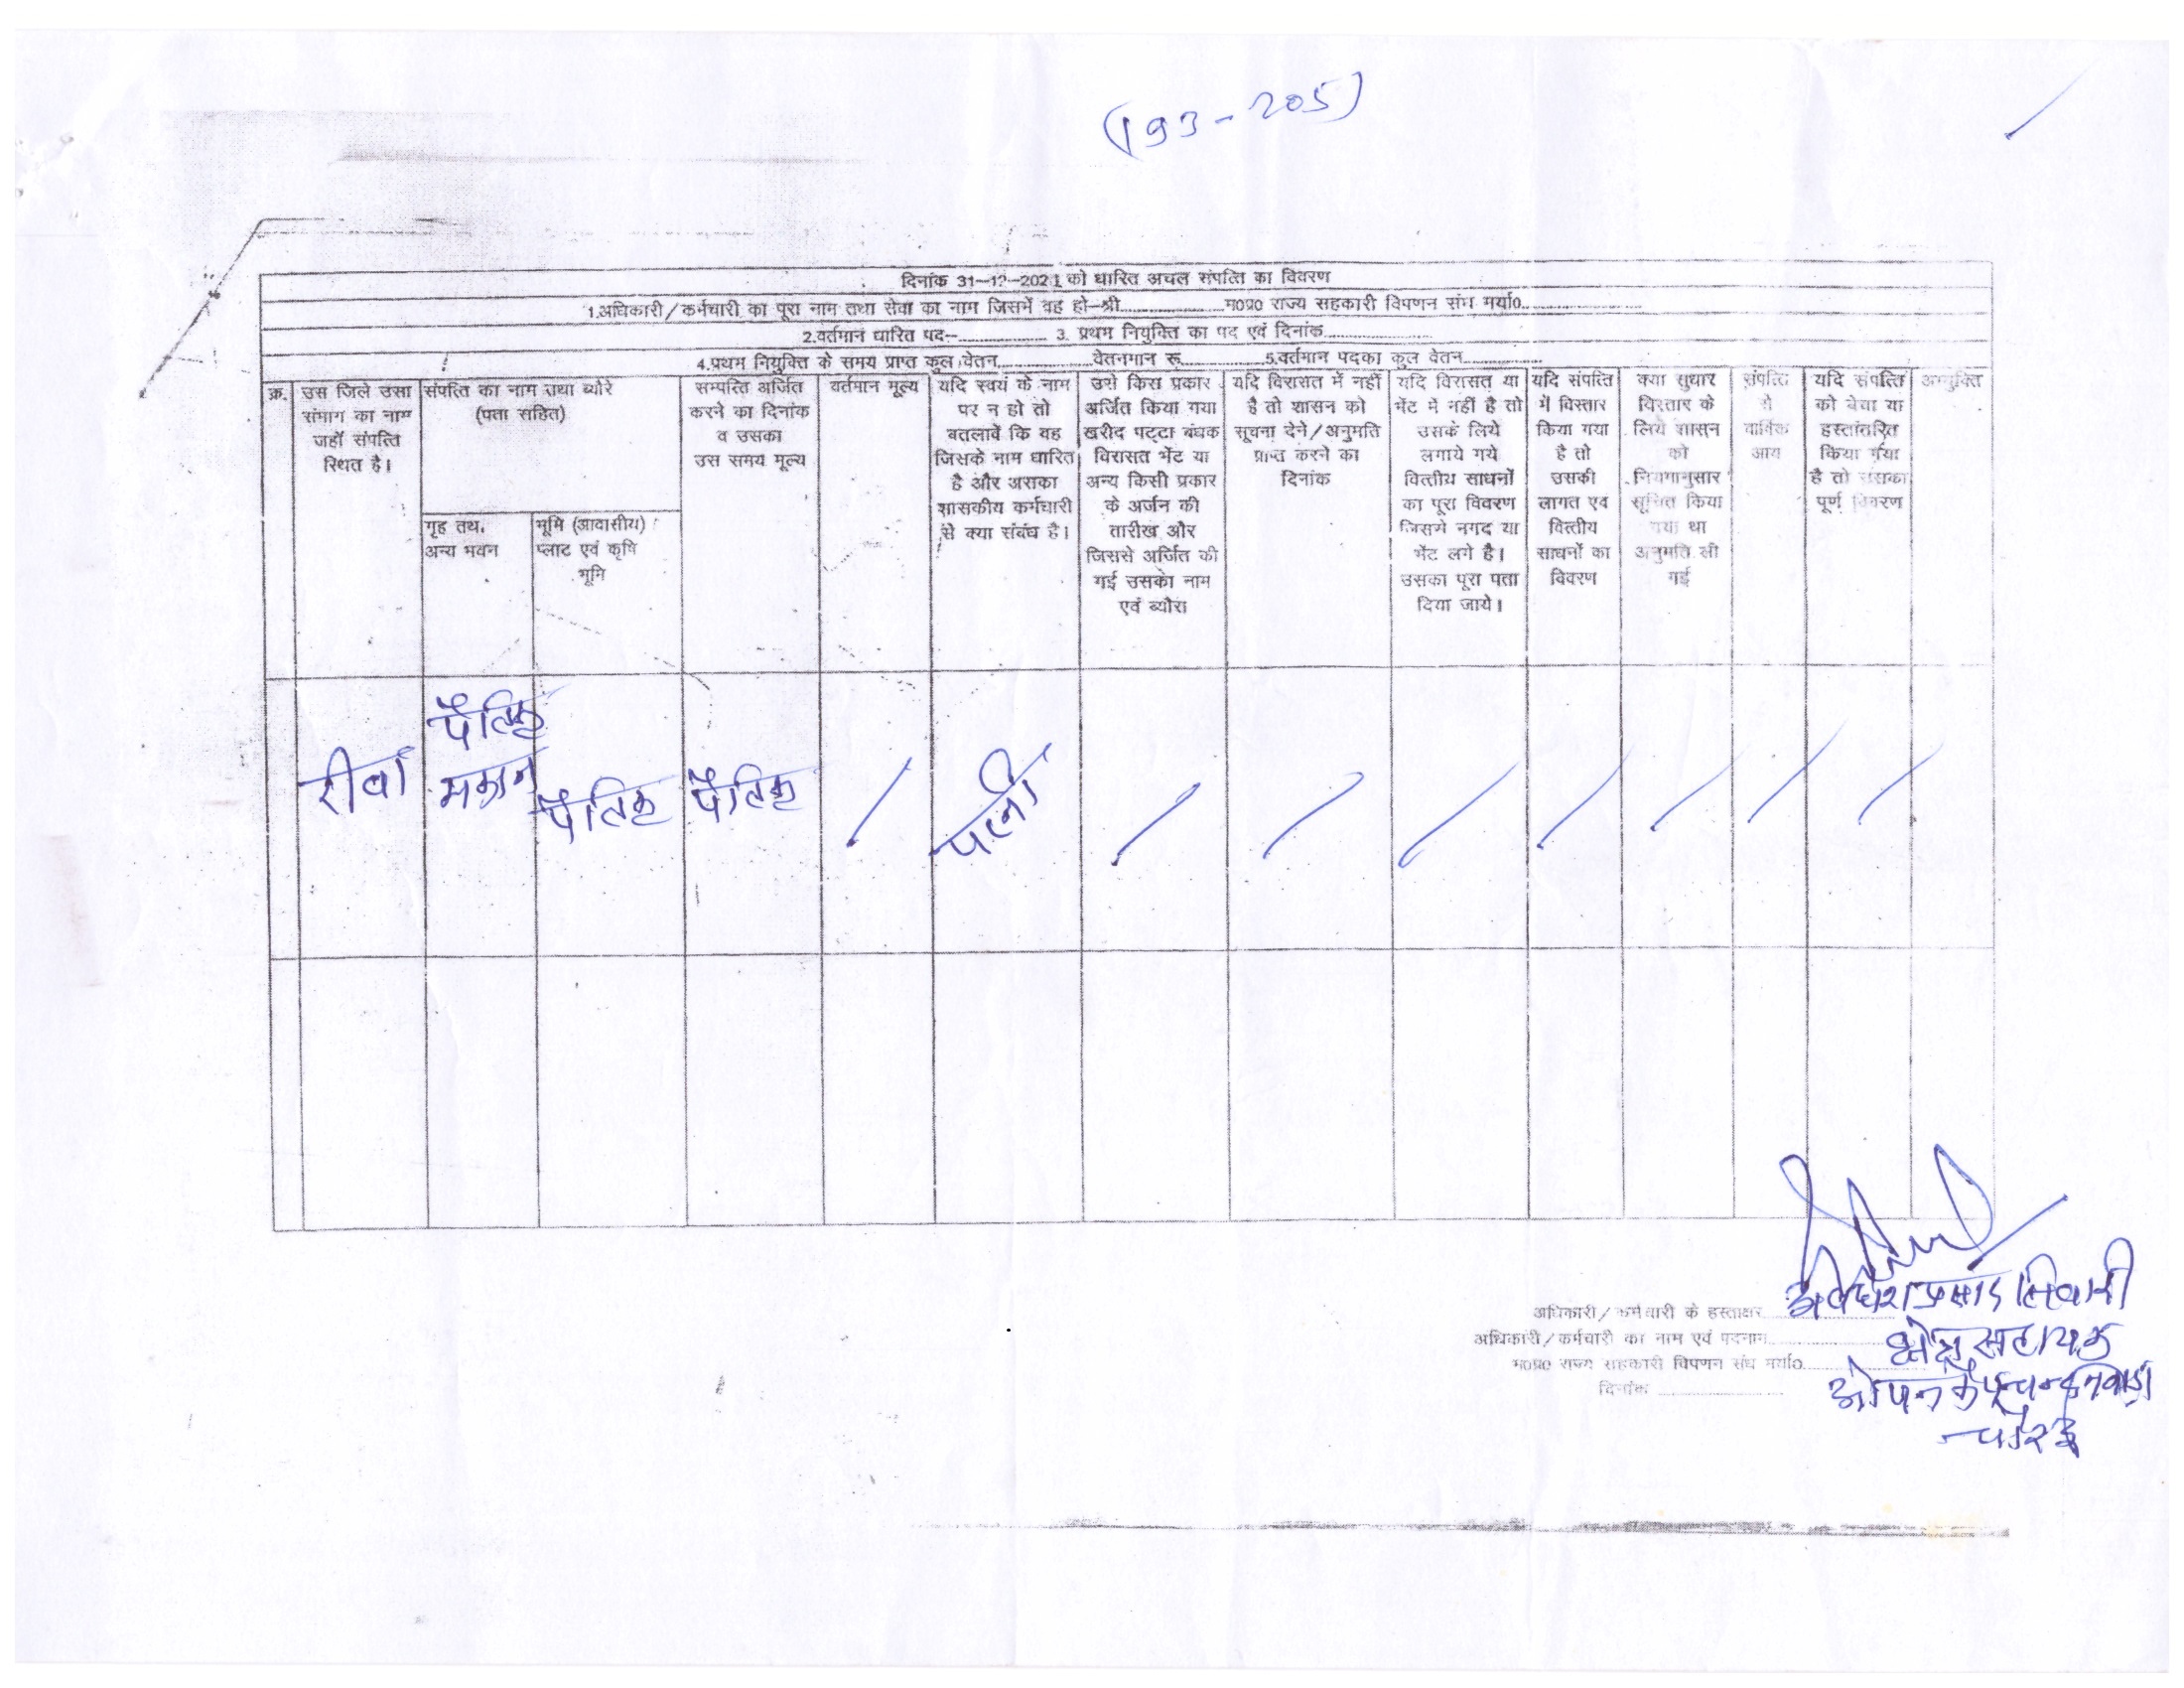 (193-205)
दिनांक 31-12-2021 को धारित अचल संपत्ति का विवरण
1.अधिकारी/कर्मचारी का पूरा नाम तथा सेवा का नाम जिसमें वह हो-श्री.....................म0प्र0 राज्य सहकारी विपणन संघ मर्या0.....................
2.वर्तमान धारित पद-..................... 3. प्रथम नियुक्ति का पद एवं दिनांक.....................
4.प्रथम नियुक्ति के समय प्राप्त कुल वेतन.....................वेतनमान रू.....................5.वर्तमान पदका कुल वेतन.....................
क्र.
उस जिले उसा
संभाग का नाम
जहॉं संपत्ति
स्थित है।
संपत्ति का नाम तथा ब्यौरे
(पता सहित)
गृह तथ.
अन्य भवन
भूमि (आवासीय)
प्लाट एवं कृषि
भूमि
सम्पत्ति अर्जित
करने का दिनांक
व उसका
उस समय मूल्य
वर्तमान मूल्य
यदि स्वयं के नाम
पर न हो तो
बतलावें कि वह
जिसके नाम धारित
है और असका
शासकीय कर्मचारी
से क्या संबंध है।
उसे किस प्रकार
अर्जित किया गया
खरीद पट्टा बंधक
विरासत भेंट या
अन्य किसी प्रकार
के अर्जन की
तारीख और
जिससे अर्जित की
गई उसका नाम
एवं ब्यौरा
यदि विरासत में नहीं
है तो शासन को
सूचना देने/अनुमति
प्राप्त करने का
दिनांक
यदि विरासत या
भेंट में नहीं है तो
उसके लिये
लगाये गये
वित्तीय साधनों
का पूरा विवरण
जिसमे नगद या
भेंट लगे है।
उसका पूरा पता
दिया जाये।
यदि संपत्ति
में विस्तार
किया गया
है तो
उसकी
लागत एव
वित्तीय
साधनों का
विवरण
क्या सुधार
विस्तार के
लिये शासन
को
नियमानुसार
सूचित किया
गया था
अनुमति ली
गई
संपत्ति
से
वार्षिक
आय
यदि संपत्ति
को बेचा या
हस्तांतरित
किया गया
है तो उसका
पूर्ण विवरण
अभ्युक्ति
रीवा
पैतिक
मकान
पैतिक
पैतिक
पत्नी
अधिकारी/कर्मचारी के हस्ताक्षर.....................
अधिकारी/कर्मचारी का नाम एवं पदनाम.....................
म0प्र0 राज्य सहकारी विपणन संघ मर्या0.....................
दिनांक .....................
अवधेश प्रसाद तिवारी
क्षेत्र सहायक
चौरई